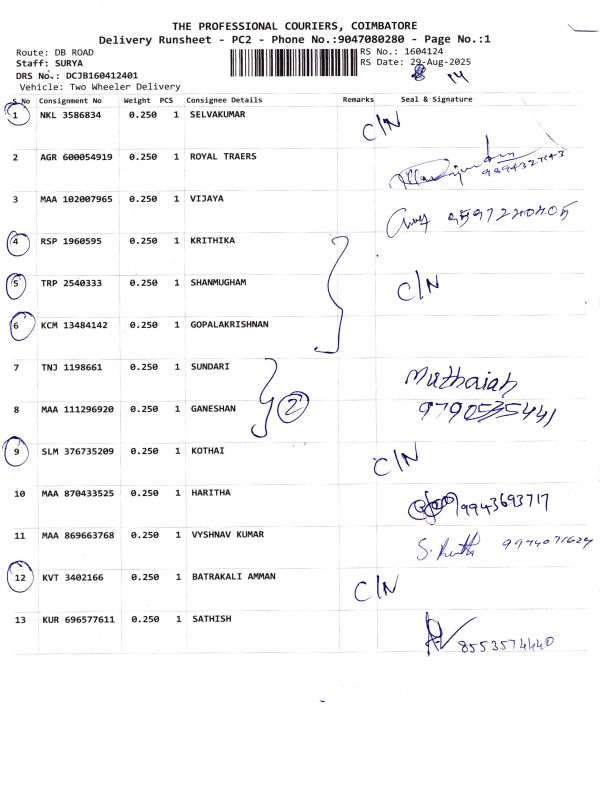 THE PROFESSIONAL COURIERS, COIMBATORE
Delivery Runsheet - PC2 - Phone No.:9047080280 - Page No.:1
Route: DB ROAD RS No.: 1604124
Staff: SURYA RS Date: 29-Aug-2025
DRS No.: DCJB160412401 14
Vehicle: Two Wheeler Delivery
S.No Consignment No Weight PCS Consignee Details Remarks Seal & Signature
1 NKL 3586834 0.250 1 SELVAKUMAR C/N
2 AGR 600054919 0.250 1 ROYAL TRAERS
3 MAA 102007965 0.250 1 VIJAYA
4 RSP 1960595 0.250 1 KRITHIKA
5 TRP 2540333 0.250 1 SHANMUGHAM C/N
6 KCM 13484142 0.250 1 GOPALAKRISHNAN
7 TNJ 1198661 0.250 1 SUNDARI Muthaiah
8 MAA 111296920 0.250 1 GANESHAN 2 9790535441
9 SLM 376735209 0.250 1 KOTHAI C/N
10 MAA 870433525 0.250 1 HARITHA 9943693717
11 MAA 869663768 0.250 1 VYSHNAV KUMAR
12 KVT 3402166 0.250 1 BATRAKALI AMMAN C/N
13 KUR 696577611 0.250 1 SATHISH 8553574440